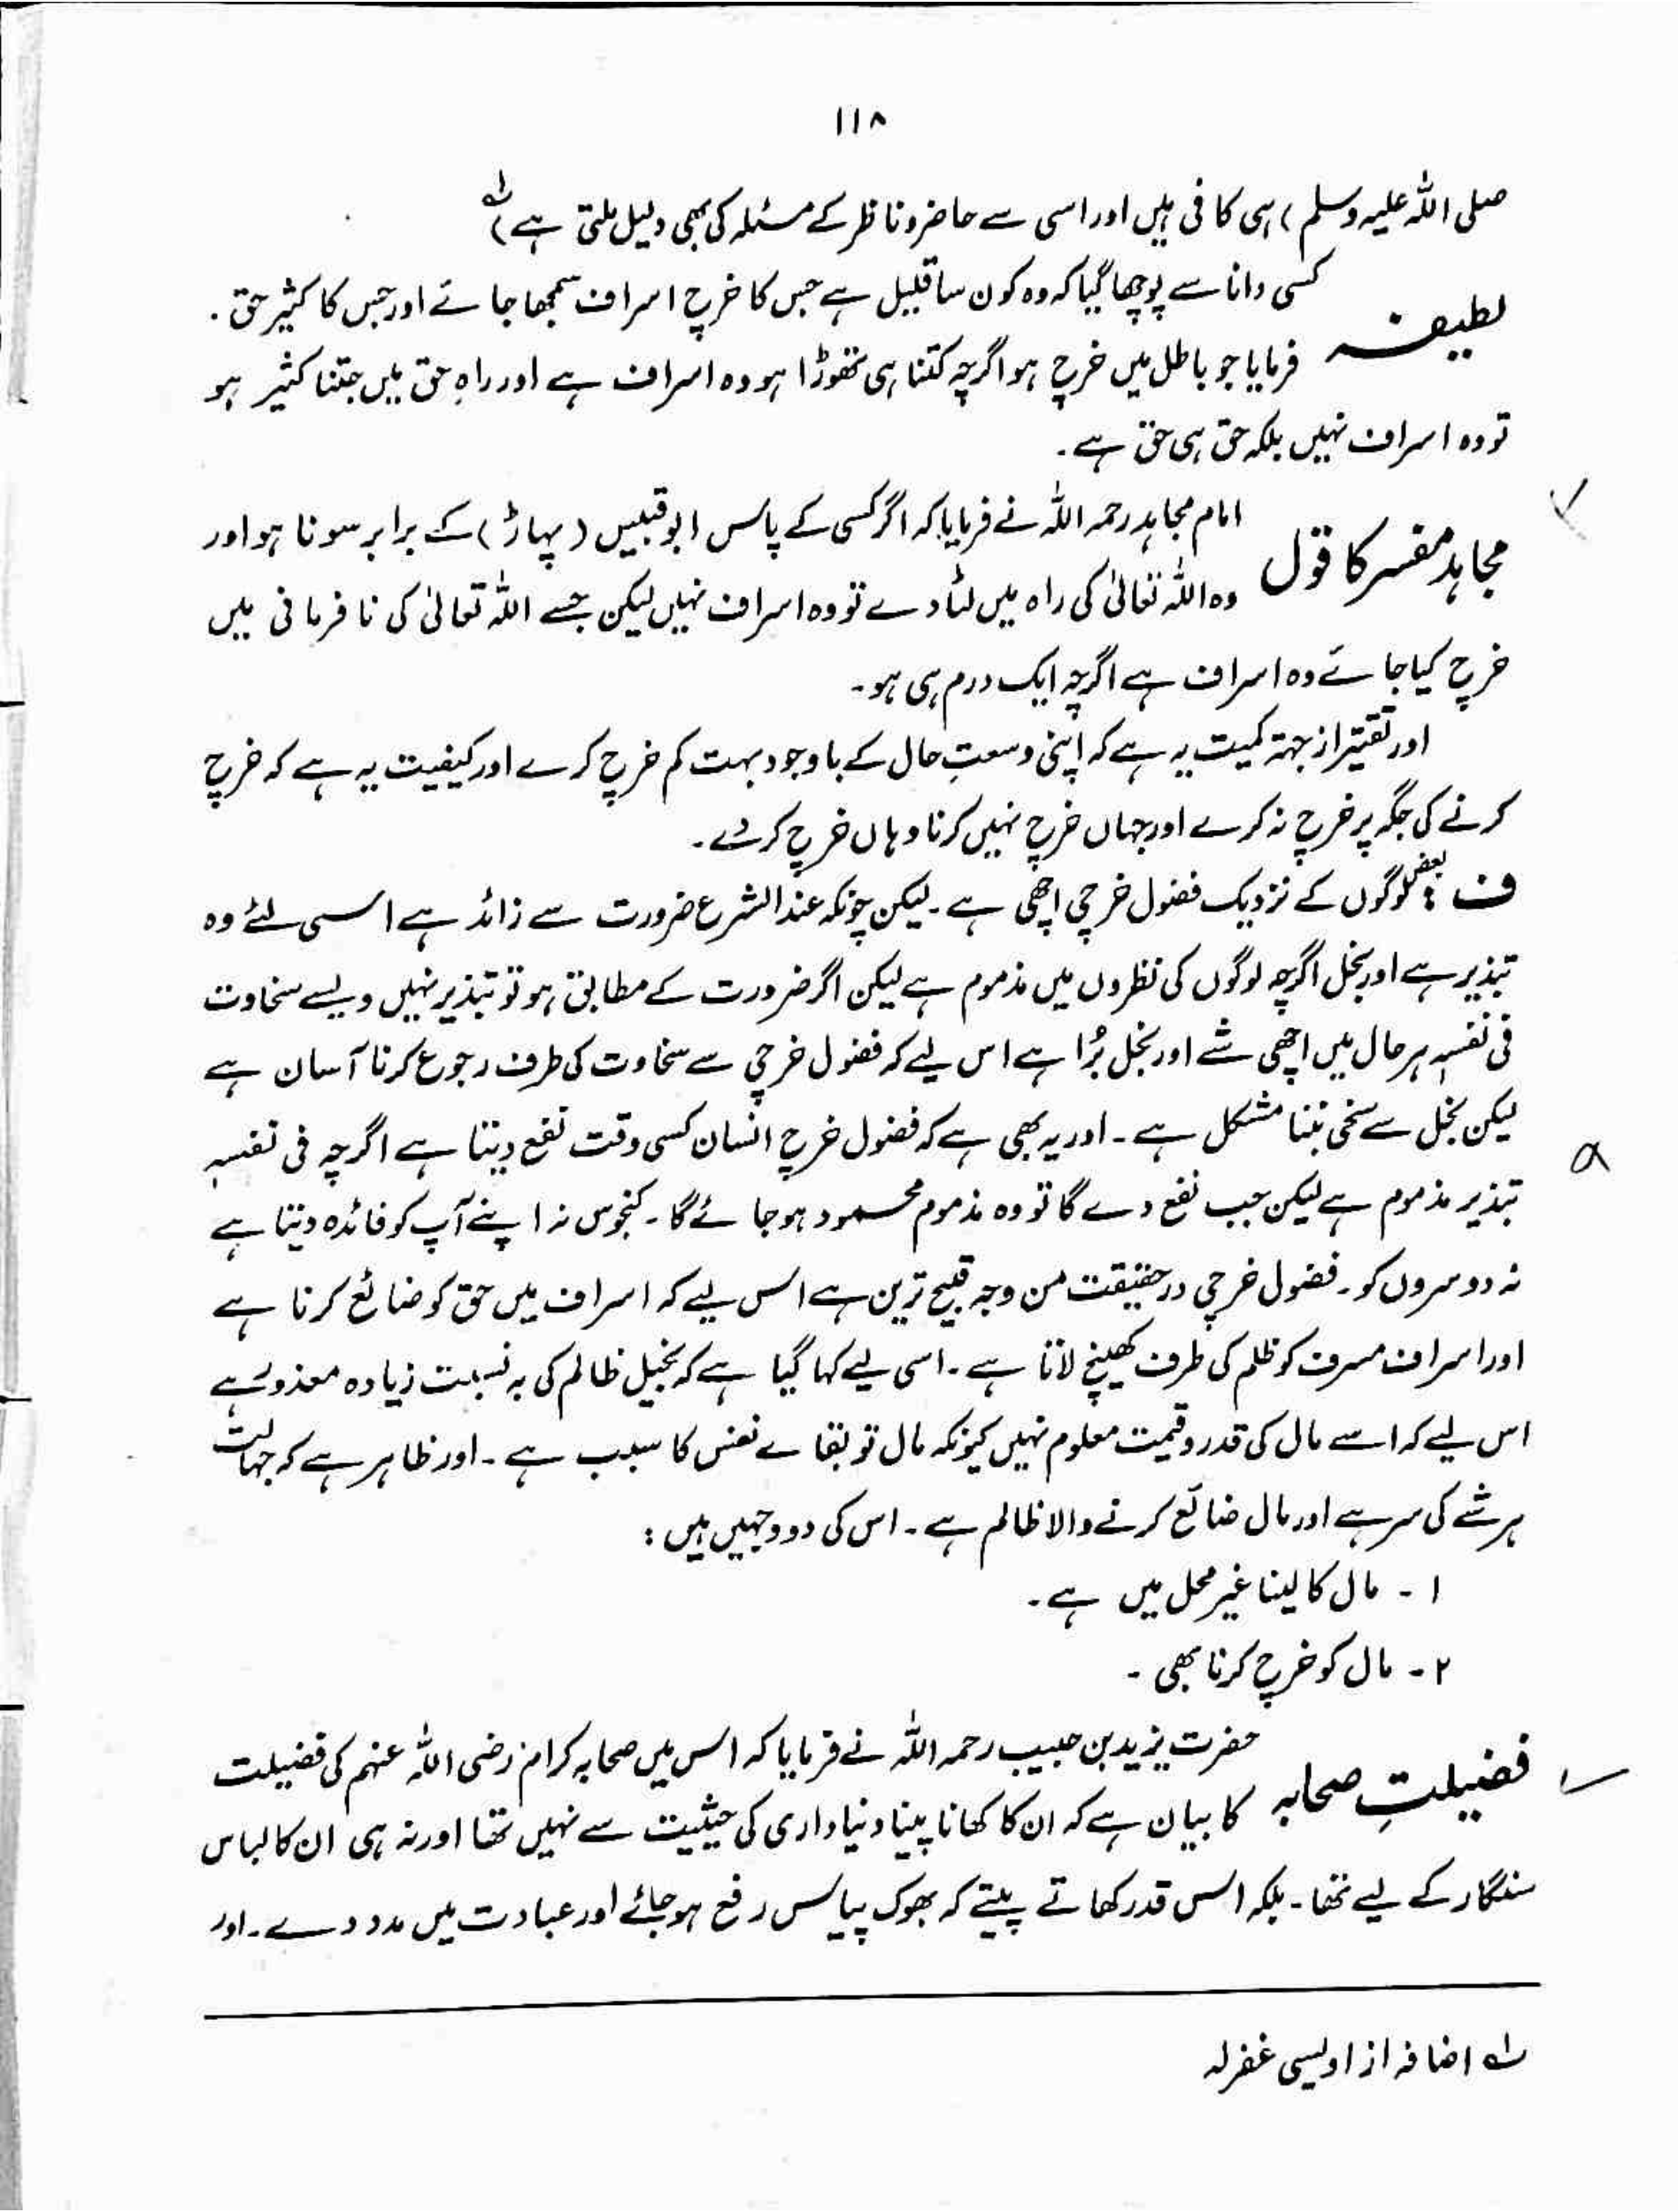 ۱۱۸
صلی اللہ علیہ وسلم) ہی کافی ہیں اور اسی سے حاضر و ناظر کے مسئلہ کی بھی دلیل ملتی ہے) لہ
لطیفہ کسی دانا سے پوچھا گیا کہ وہ کون سا قلیل ہے جس کا خرچ اسراف سمجھا جائے اور جس کا کثیر حق۔
فرمایا جو باطل میں خرچ ہو اگرچہ کتنا ہی تھوڑا ہو وہ اسراف ہے اور راہِ حق میں جتنا کثیر ہو
تو وہ اسراف نہیں بلکہ حق ہی حق ہے۔
مجاہد مفسر کا قول امام مجاہد رحمہ اللہ نے فرمایا کہ اگر کسی کے پاس ابوقبیس (پہاڑ) کے برابر سونا ہو اور
وہ اللہ تعالیٰ کی راہ میں لٹا دے تو وہ اسراف نہیں لیکن جسے اللہ تعالیٰ کی نافرمانی میں
خرچ کیا جائے وہ اسراف ہے اگرچہ ایک درم ہی ہو۔
اور تقتیر از جہۃ کمیت یہ ہے کہ اپنی وسعتِ حال کے باوجود بہت کم خرچ کرے اور کیفیت یہ ہے کہ خرچ
کرنے کی جگہ پر خرچ نہ کرے اور جہاں خرچ نہیں کرنا وہاں خرچ کر دے۔
ف : بعض لوگوں کے نزدیک فضول خرچی اچھی ہے۔ لیکن چونکہ عند الشرع ضرورت سے زائد ہے اسی لئے وہ
تبذیر ہے اور بخل اگرچہ لوگوں کی نظروں میں مذموم ہے لیکن اگر ضرورت کے مطابق ہو تو تبذیر نہیں ویسے سخاوت
فی نفسہٖ ہر حال میں اچھی شے اور بخل بُرا ہے اس لیے کہ فضول خرچی سے سخاوت کی طرف رجوع کرنا آسان ہے
لیکن بخل سے سخی بننا مشکل ہے۔ اور یہ بھی ہے کہ فضول خرچ انسان کسی وقت نفع دیتا ہے اگرچہ فی نفسہٖ
تبذیر مذموم ہے لیکن جب نفع دے گا تو وہ مذموم محمود ہو جائے گا۔ کنجوس نہ اپنے آپ کو فائدہ دیتا ہے
نہ دوسروں کو۔ فضول خرچی درحقیقت من وجہ قبیح ترین ہے اس لیے کہ اسراف میں حق کو ضائع کرنا ہے
اور اسراف مسرف کو ظلم کی طرف کھینچ لاتا ہے۔ اسی لیے کہا گیا ہے کہ بخیل ظالم کی بہ نسبت زیادہ معذور ہے
اس لیے کہ اسے مال کی قدر و قیمت معلوم نہیں کیونکہ مال تو بقائے نفس کا سبب ہے۔ اور ظاہر ہے کہ جہالت
ہر شے کی سر ہے اور مال ضائع کرنے والا ظالم ہے۔ اس کی دو وجہیں ہیں :
۱ - مال کا لینا غیر محل میں ہے۔
۲ - مال کو خرچ کرنا بھی۔
فضیلتِ صحابہ حضرت یزید بن حبیب رحمہ اللہ نے فرمایا کہ اس میں صحابہ کرام رضی اللہ عنہم کی فضیلت
کا بیان ہے کہ ان کا کھانا پینا دنیا داری کی حیثیت سے نہیں تھا اور نہ ہی ان کا لباس
سنگار کے لیے تھا۔ بلکہ اس قدر کھاتے پیتے کہ بھوک پیاس رفع ہو جائے اور عبادت میں مدد دے۔ اور
لہ اضافہ از اویسی غفرلہ